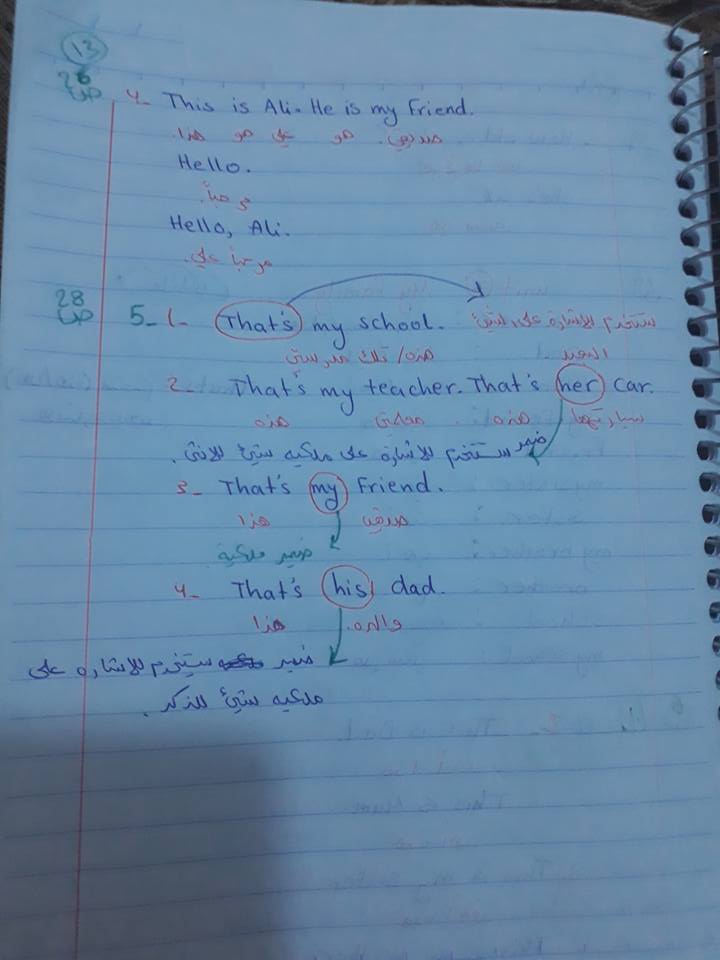 13
26
ص
4- This is Ali. He is my friend.
هذا هو علي هو صديقي.
Hello.
مرحباً.
Hello, Ali.
مرحباً علي.
28
ص
5- 1- That's my school. ستخدم للاشارة على شيئ
هذه/ تلك مدرستي البعيد
2- That's my teacher. That's her car.
هذه معلمتي هذه. سيارتها
ضمير ستخدم للاشارة على ملكيه شيئ للانثى.
3- That's my friend.
هذا صديقي
ضمير ملكية
4- That's his dad.
هذا والده.
ضمير ستخدم للاشاره على
ملكيه شيئ للذكر.